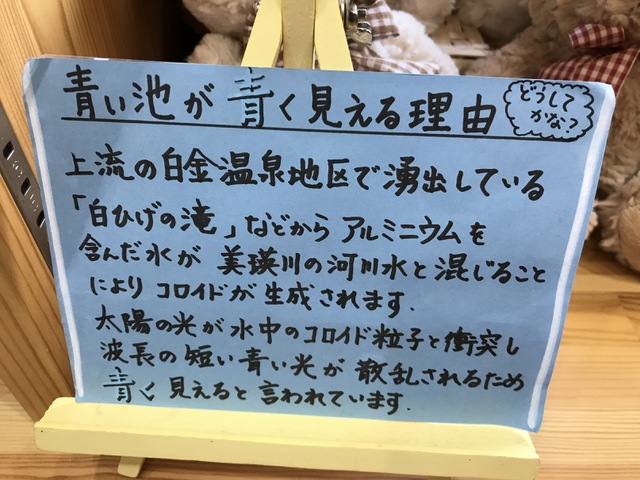 青い池が青く見える理由
どうして
かな?
上流の白金温泉地区で湧出している
「白ひげの滝」などからアルミニウムを
含んだ水が 美瑛川の河川水と混じること
によりコロイドが生成されます.
太陽の光が水中のコロイド粒子と衝突し
波長の短い青い光が散乱されるため
青く見えると言われています.